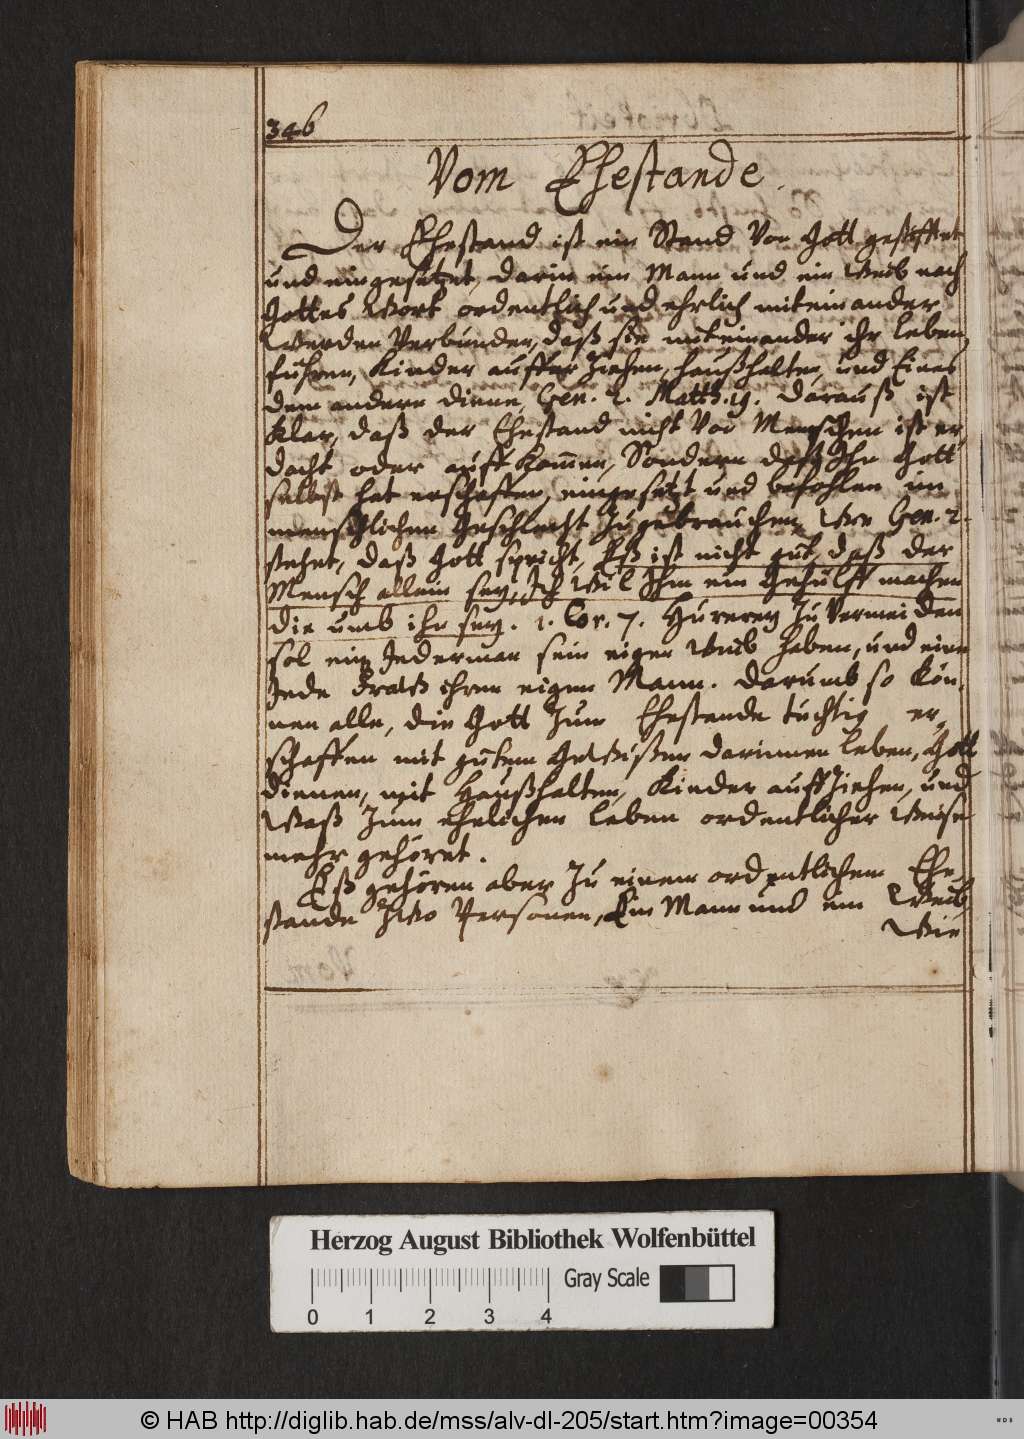 346
Vom Ehestande.
Der Ehestand ist ein Stand Von Gott gestifftet
und eingesetzet, darin ein Mann und ein Weib nach
Gottes Wort ordentlich und ehrlich miteinander
Werden Verbunden, daß sie miteinander ihr leben
führen, Kinder aufferziehen, haußhalten, und Eines
dem andern diene, Gen. 2. Matth. 19. darauß ist
klar, daß der Ehestand nicht Von Menschen ist er,
dacht oder auffkom̄en, Sondern daß Ihn Gott
selbst hat erschaffen, eingesetzt und befohlen im
menschlichen Geschlecht Zugebrauchen, Wie Gen. 2.
stehet, daß Gott spricht, Eß ist nicht gut, daß der
Mensch allein sey, Ich Wil Ihm ein Gehülff machen
die umb ihn sey. 1. Cor. 7. Hurerey Zu Vermeiden
sol ein Jederman sein eigen Weib haben, und eine
Jede Fraw ihren eigen Mann. darumb so kön,
nen alle, die Gott Zum Ehestande tüchtig er,
schaffen mit gutem Gewissen darinnen leben, Gott
dienen, mit Haußhalten, Kinder auffziehen, und
Waß Zum ehelichen leben ordentlicher Weise
mehr gehöret.
Eß gehören aber Zu einem ordentlichem Ehe,
stande Zwo Personen, Ein Mann und ein Weib,
Wie
Herzog August Bibliothek Wolfenbüttel
Gray Scale
0 1 2 3 4
© HAB http://diglib.hab.de/mss/alv-dl-205/start.htm?image=00354